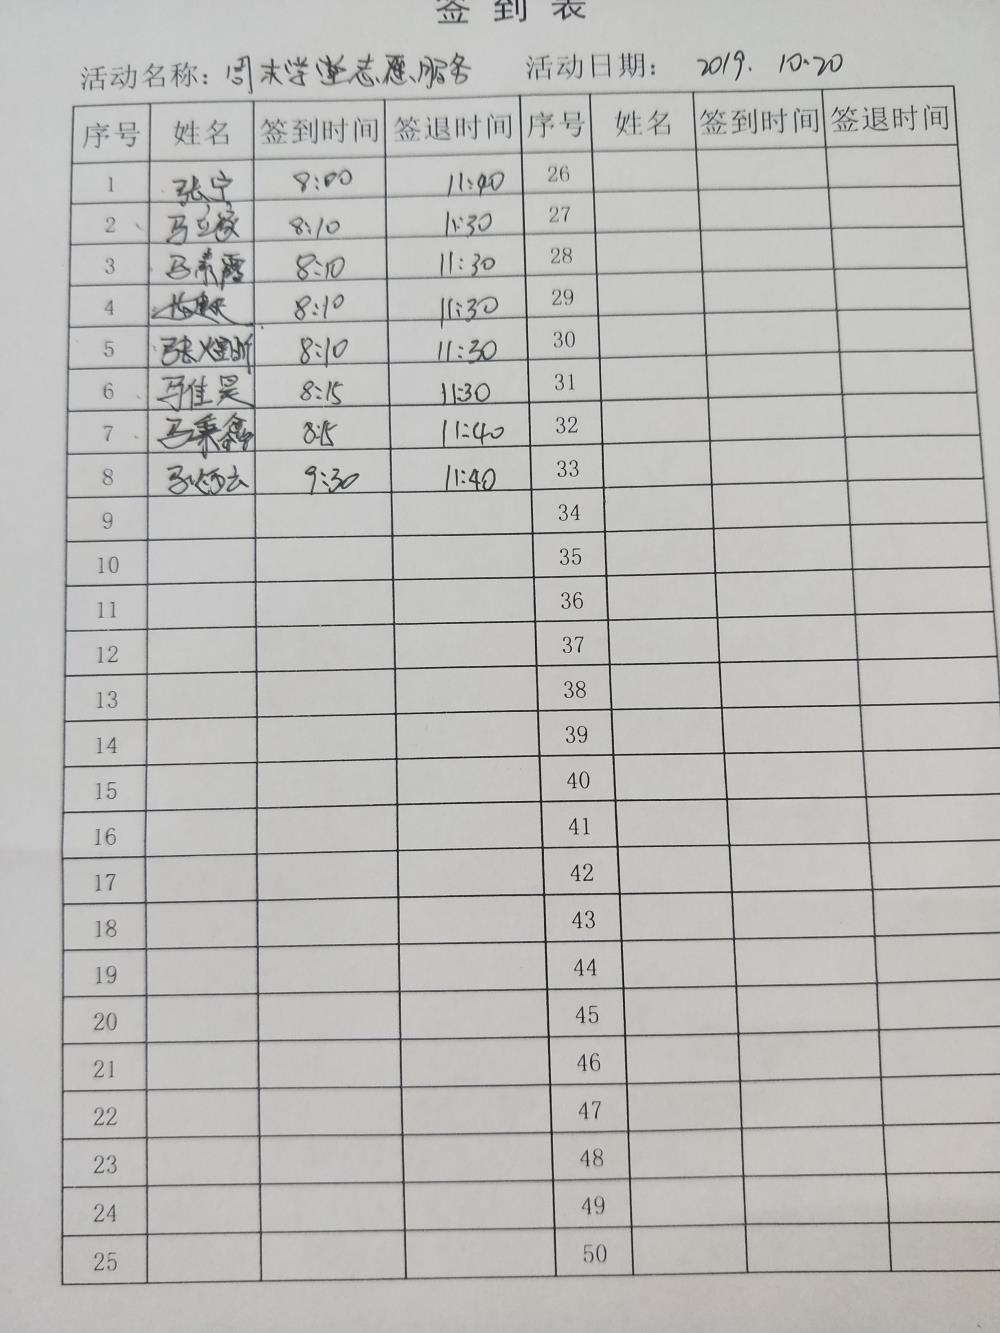 签到表
活动名称: 周末学堂志愿服务 活动日期: 2019. 10.20
序号 姓名 签到时间 签退时间 序号 姓名 签到时间 签退时间
1 张宁 8:00 11:40 26
2 马立 8:10 11:30 27
3 马 8:10 11:30 28
4 8:10 11:30 29
5 张煜昕 8:10 11:30 30
6 马佳昊 8:15 11:30 31
7 马秉鑫 8:15 11:40 32
8 马 9:30 11:40 33
9 34
10 35
11 36
12 37
13 38
14 39
15 40
16 41
17 42
18 43
19 44
20 45
21 46
22 47
23 48
24 49
25 50